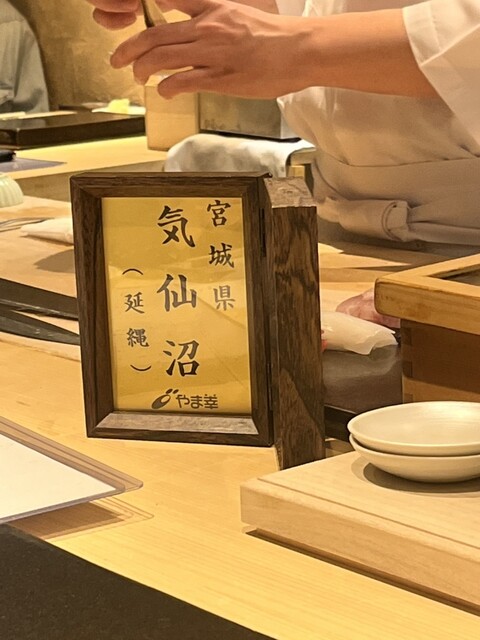 宮城県
気仙沼
（延縄）
やま幸